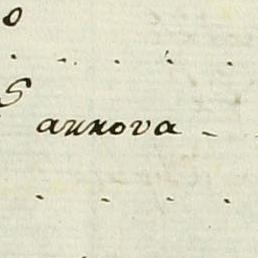 o
S
aunova